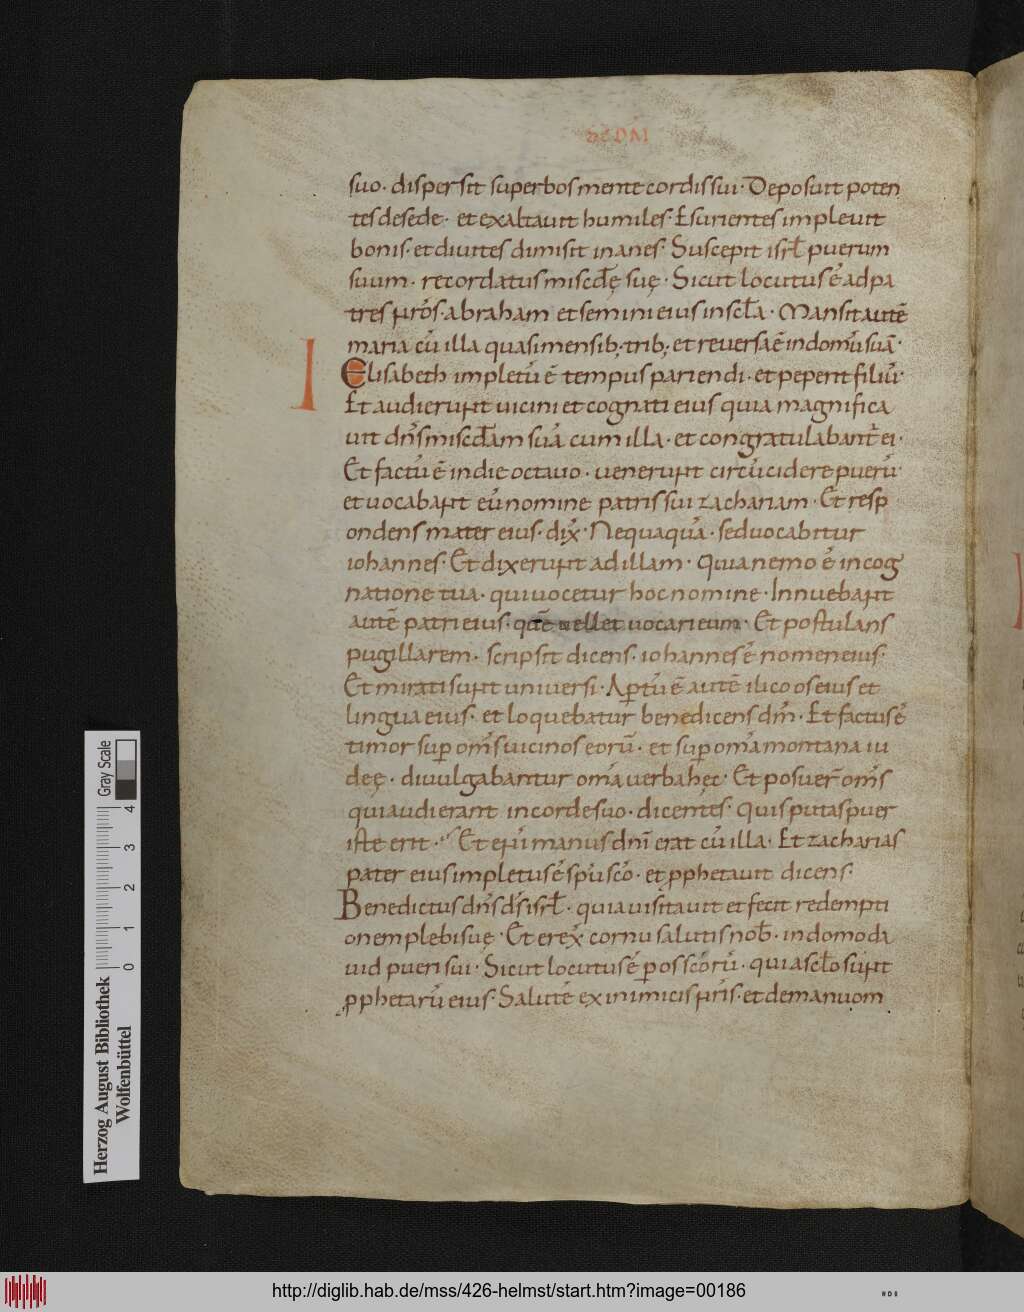 SCDM
suo· dispersit superbos mente cordis sui· Deposuit poten
tes de sede· et exaltauit humiles· Esurientes impleuit
bonis· et diuites dimisit inanes· Suscepit isrl̄ puerum
suum· recordatus miscdę̄ suę· Sicut locutus ē ad pa
tres nr̄os· abraham et semini eius in scl̄a· Mansit autē
maria cū illa quasi mensib; trib; et reuersa ē in domū suā·
I
Elisabeth impletū ē tempus pariendi· et peperit filiū·
Et audierunt uicini et cognati eius quia magnifica
uit dn̄s miscd̄am suā cum illa· et congratulabant̄ ei·
Et factū ē in die octauo· uenerunt circūcidere puerū·
et uocabant eū nomine patris sui zachariam· Et resp
ondens mater eius· dix̄· Nequaquā· sed uocabitur
iohannes· Et dixerunt ad illam· Quia nemo ē in cog
natione tua· qui uocetur hoc nomine· Innuebant
autē patri eius· quē uellet uocari eum· Et postulans
pugillarem· scripsit dicens· iohannes ē nomen eius·
Et mirati sunt uniuersi· Aptū ē autē ilico os eius et
lingua eius· et loquebatur benedicens dm̄· Et factus ē
timor sup om̄s uicinos eorū· et sup om̄a montana iu
deę· diuulgabantur om̄a uerba hęc· Et posuer̄ om̄s
qui audierant in corde suo· dicentes· Quis putas puer
iste erit· Et enī manus dn̄i erat cū illa· Et zacharias
pater eius impletus ē sp̄u scō· et pphetauit dicens·
Benedictus dn̄s ds̄ isrl̄· quia uisitauit et fecit redempti
onem plebi suę· Et erex̄ cornu salutis nob̄· in domo da
uid pueri sui· Sicut locutus ē p os scōrū· qui a scl̄o sunt
pphetarū eius· Salutē ex inimicis nr̄is· et de manu om
Herzog August Bibliothek
Wolfenbüttel
Gray Scale
0 1 2 3 4
http://diglib.hab.de/mss/426-helmst/start.htm?image=00186